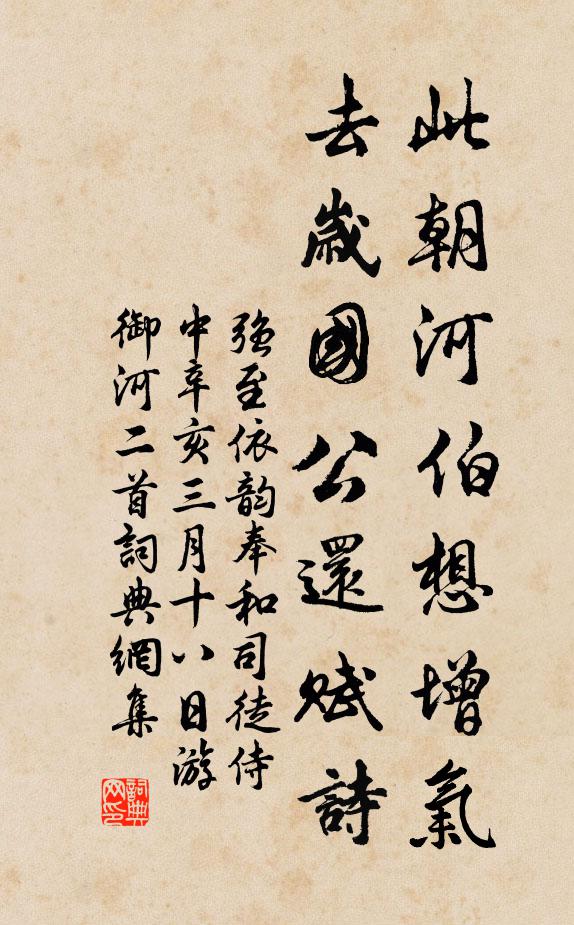 此朝河伯想增氣
去歲國公還賦詩
強至依韵奉和司徒侍
中辛亥三月十八日游
御河二首詞典網集
詞典
网印